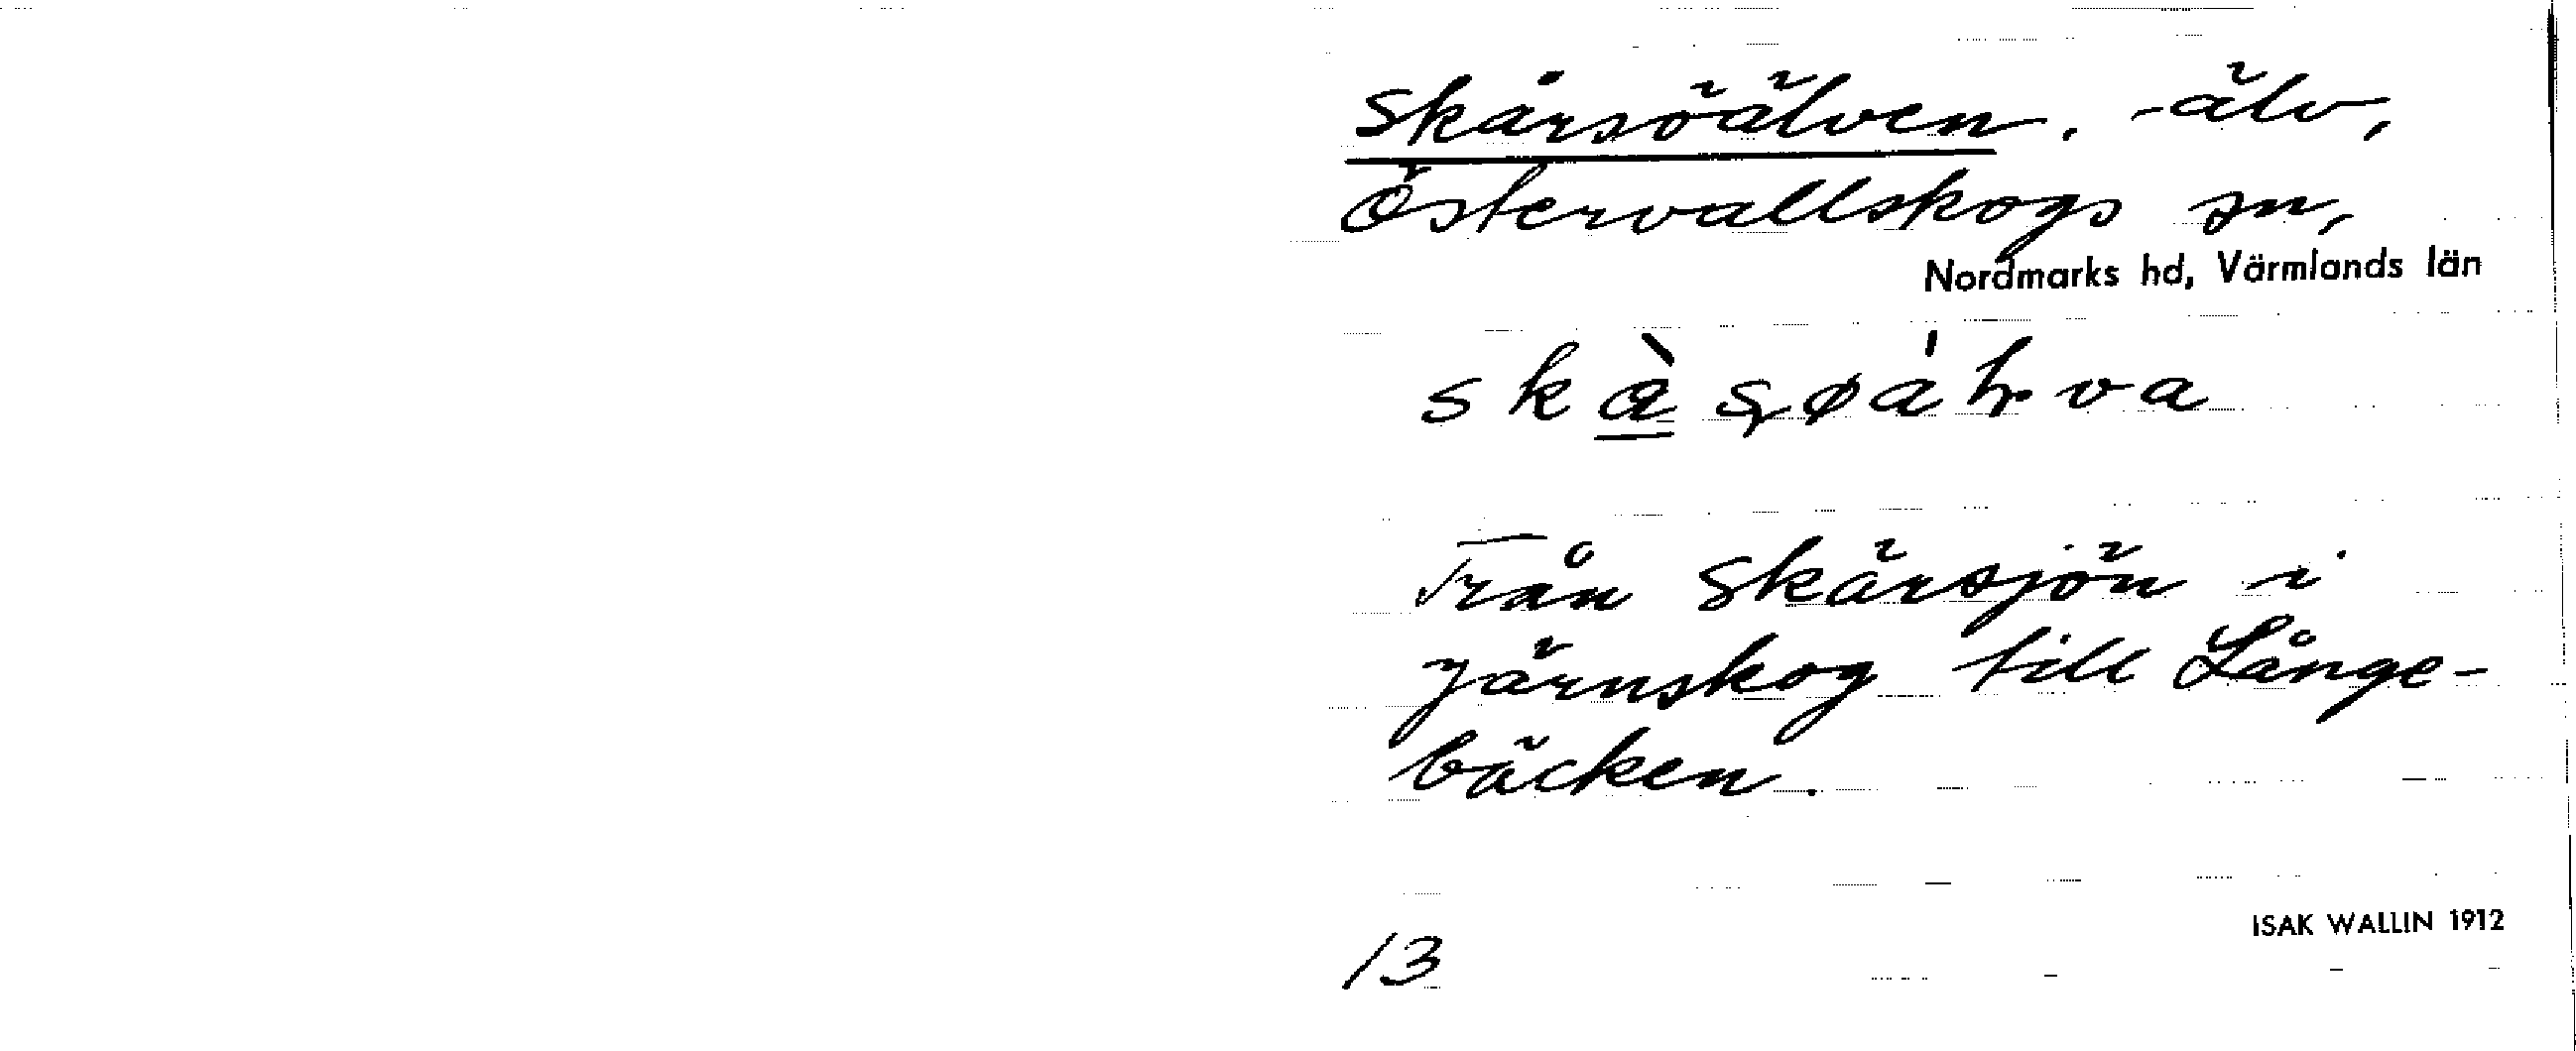 Skärsöälven. -älv,
Östervallskogs sn,
Nordmarks hd, Värmlands län
Från Skärsjön i
Järnskog till Långe-
bäcken.
ISAK WALLIN 1912
13